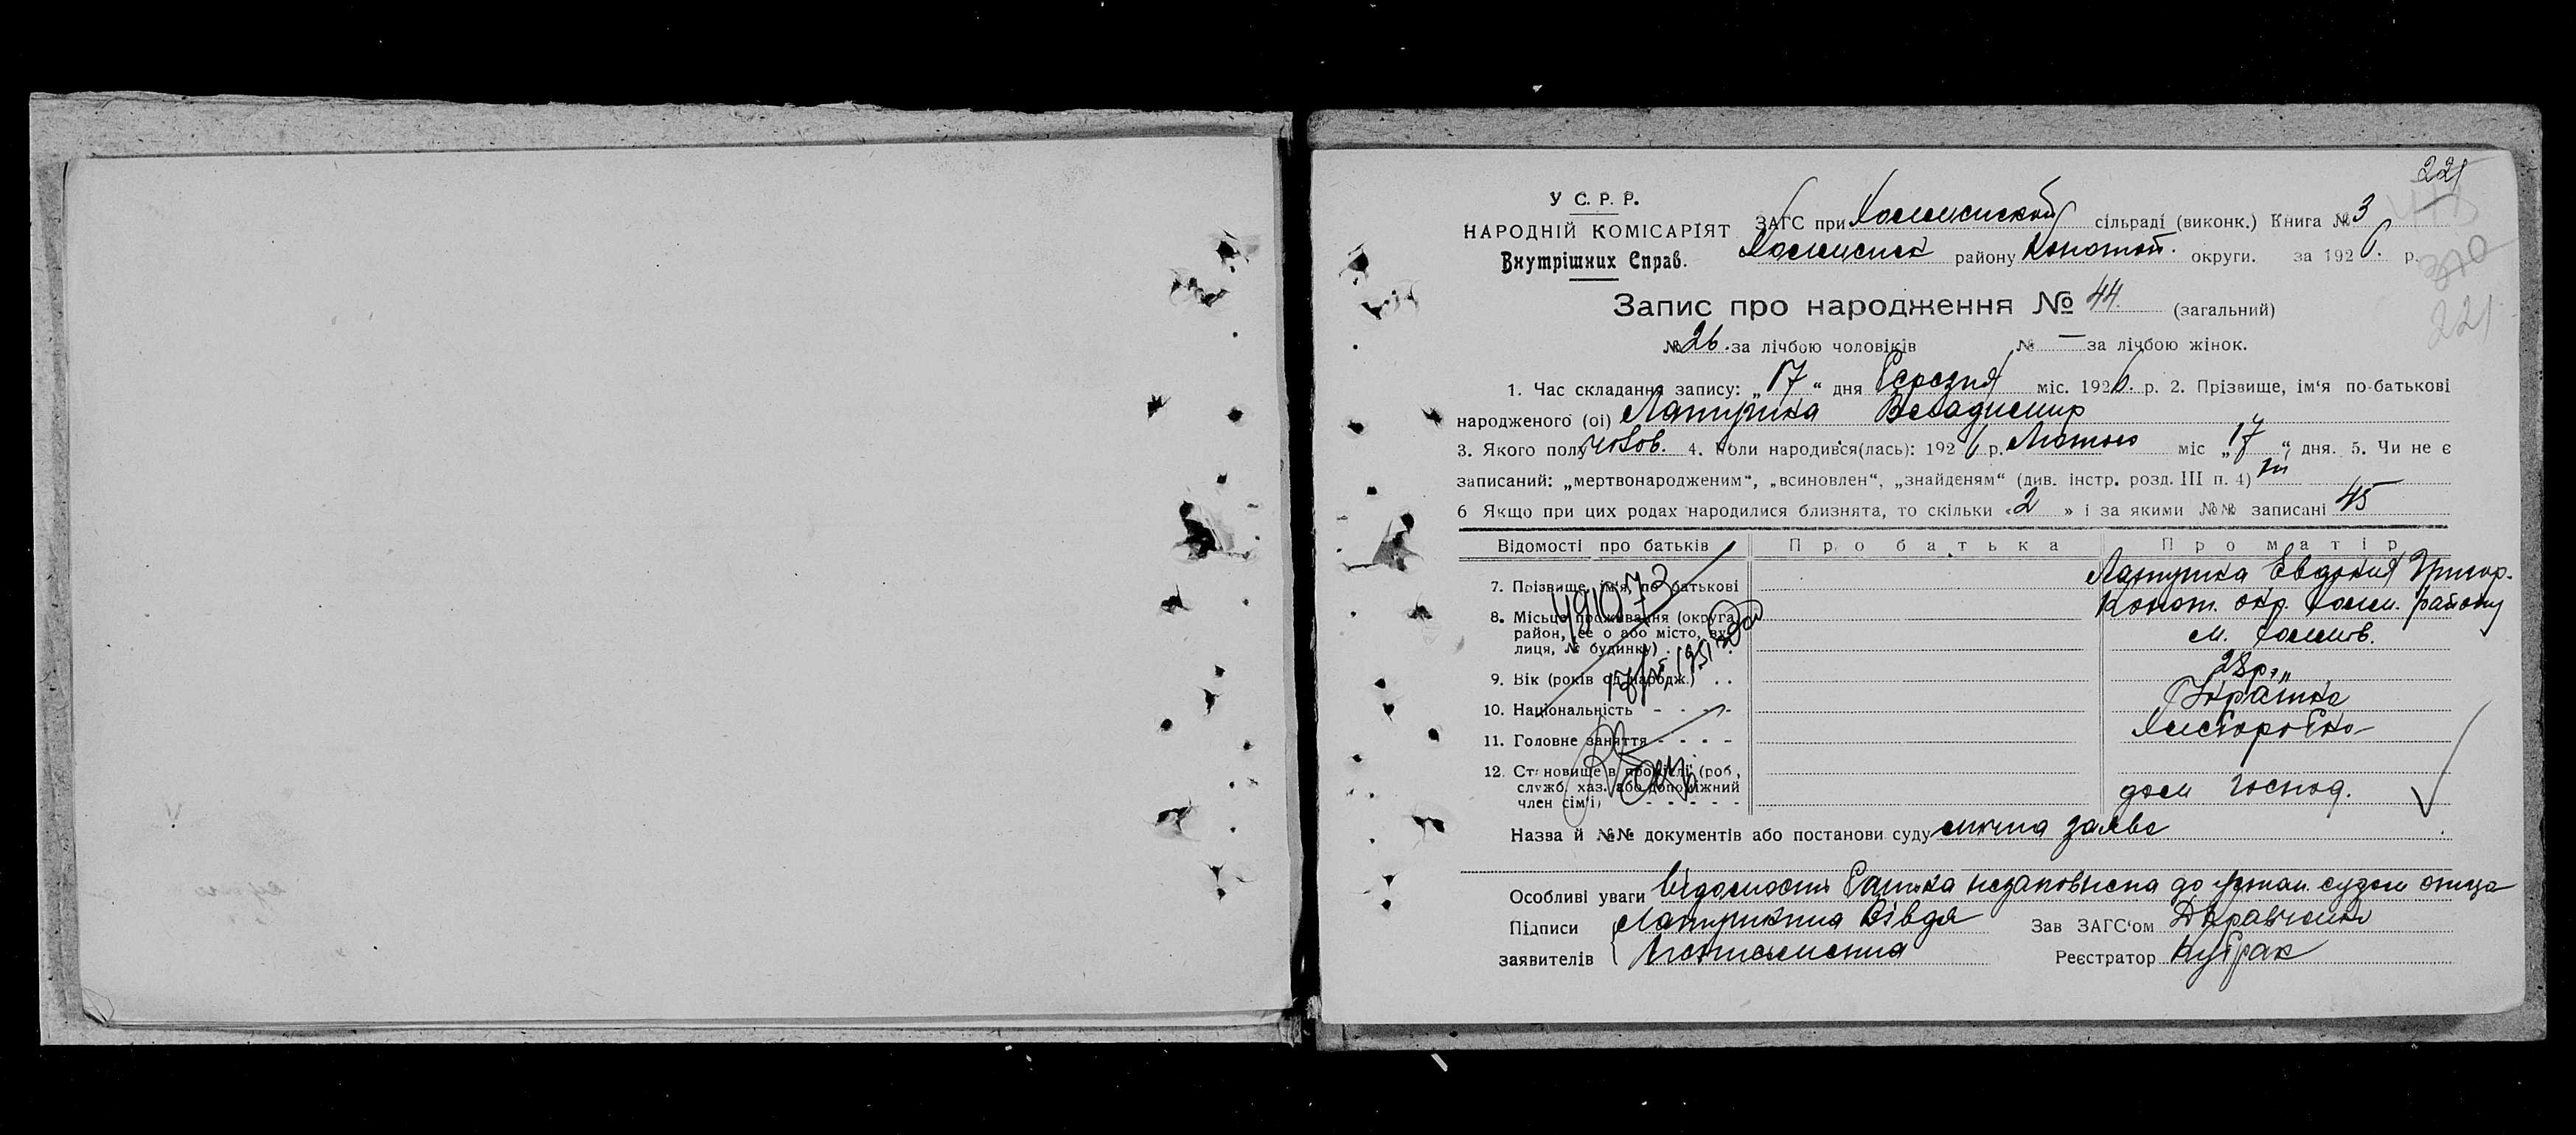 221
У С. Р. Р.
НАРОДНІЙ КОМІСАРІЯТ
Внутрішних Справ.
ЗАГС при сільраді (виконк.) Книга № 3
району Конотоп. округи. за 1926. р.
221
Запис про народження № 44. (загальний)
№ 26. за лічбою чоловіків № — за лічбою жінок.
1. Час складання запису: „17“ дня березня міс. 1926. р. 2. Прізвище, ім‘я по-батькові
народженого (оі) Володимир
3. Якого полу чолов. 4. Коли народився(лась): 1926 р. Лютого міс „17“ дня. 5. Чи не є
записаний: „мертвонародженим“, „всиновлен“, „знайденям“ (див. інстр. розд. III п. 4) ні
6 Якщо при цих родах народилися близнята, то скільки «2» і за якими №№ записані 45
Відомості про батьків Про батька Про матір
7. Прізвище, ім‘я, по батькові Григор.
8. Місце проживання (округа, район, село або місто, вулиця, № будинку) Конот. окр. району
м.
9. Вік (років од народж.) 28 р.
10. Національність - - - - Українка
11. Головне заняття - - - - Хліборобка
12. Становище в промислі (роб, служб. хаз. або допоміжний член сім‘ї) - - - - - дом господ.
Назва й №№ документів або постанови суду заява
Особливі уваги відомости батька незаповнена до судом отца
Підписи
заявителів
Зав ЗАГС‘ом
Реєстратор Кубрак